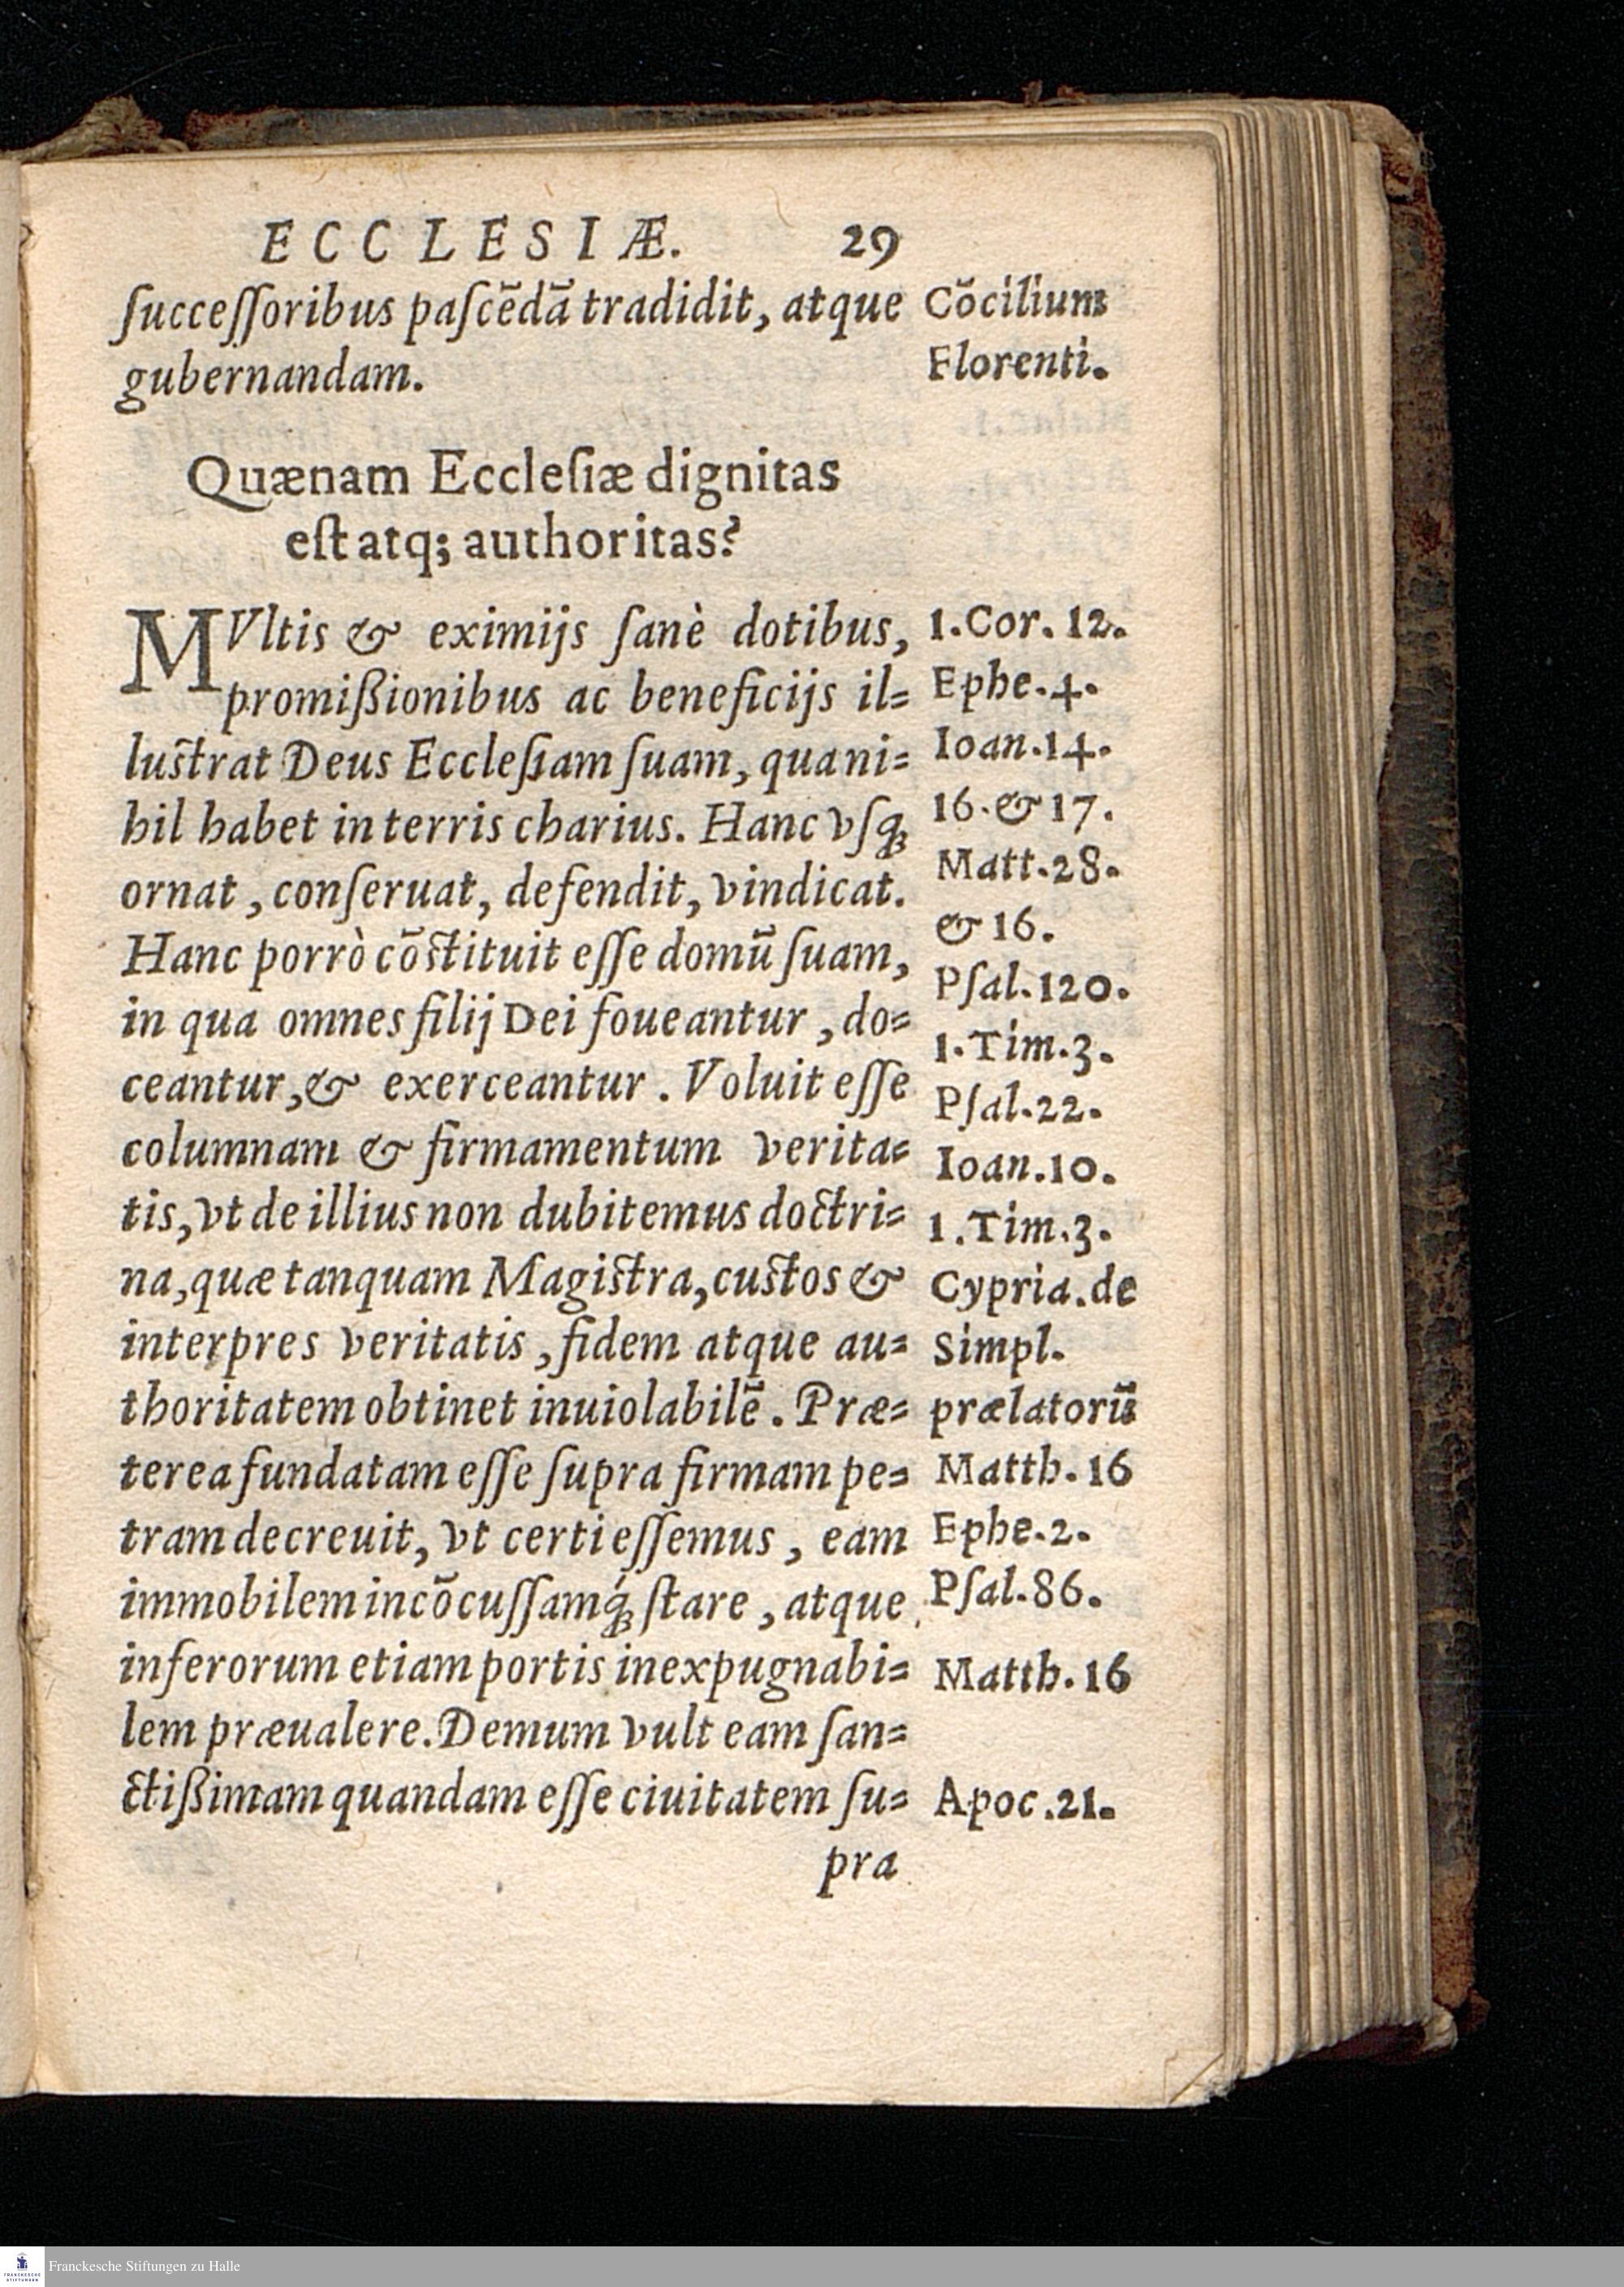 ECCLESIÆ. 29
ſucceſſoribus paſcẽdã tradidit, atque
gubernandam.
Cõcilium
Florenti.
Quænam Eccleſiæ dignitas
eſt atq; authoritas?
MVltis & eximijs ſanè dotibus,
promiſsionibus ac beneficijs il=
luſtrat Deus Eccleſiam ſuam, qua ni=
hil habet in terris charius. Hanc vſq;
ornat, conſeruat, defendit, vindicat.
Hanc porrò cõſtituit eſſe domũ ſuam,
in qua omnes filij Dei foueantur, do=
ceantur, & exerceantur. Voluit eſſe
columnam & firmamentum verita=
tis, vt de illius non dubitemus doctri=
na, quæ tanquam Magiſtra, cuſtos &
interpres veritatis, fidem atque au=
thoritatem obtinet inuiolabilẽ. Præ=
terea fundatam eſſe ſupra firmam pe=
tram decreuit, vt certi eſſemus, eam
immobilem incõcuſſamq́; ſtare, atque
inferorum etiam portis inexpugnabi=
lem præualere. Demum vult eam ſan=
ctiſsimam quandam eſſe ciuitatem ſu=
pra
1. Cor. 12.
Ephe. 4.
Ioan. 14.
16. & 17.
Matt. 28.
& 16.
Pſal. 120.
1. Tim. 3.
Pſal. 22.
Ioan. 10.
1. Tim. 3.
Cypria. de
Simpl.
prælatorũ
Matth. 16
Ephe. 2.
Pſal. 86.
Matth. 16
Apoc. 21.
FRANCKESCHE
STIFTUNGEN
Franckesche Stiftungen zu Halle